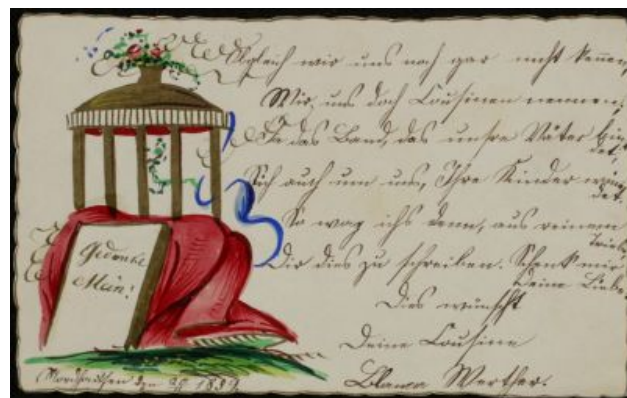 Obgleich wir uns noch gar nicht kennen,
Wir uns doch Cousinen nennen;
Da das Band, das unsre Väter bin
det,
Sich auch um uns, Ihre Kinder win
det.
So wag ichs denn, aus reinem
Triebe,
Dir dies zu schreiben. Schenk mir
Deine Liebe.
Dies wünscht
Deine Cousine
Werther.
Gedenke
Mein!
Nordhausen den 1832